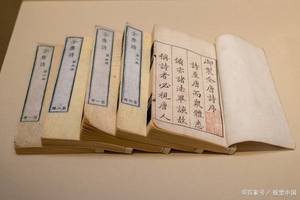 御製全唐詩序
詩至唐而衆體悉
備亦諸法畢該故
稱詩者必視唐人
全唐詩
全唐詩
全唐詩
全唐詩
百家号/视觉中国